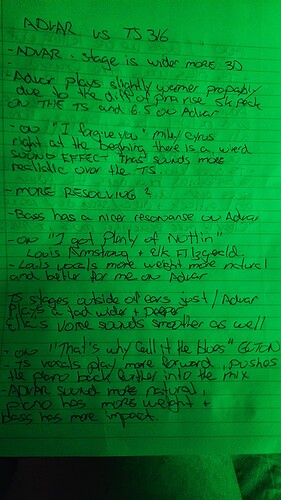 ADVAR VS TS 316
- ADVAR - stage is wider more 3D
- Advar plays slightly warmer propably
due to the diff of pina rise 5k Peak
ON THE TS and 6.5 on Advar
- on "I forgive you" miley cyrus
right at the beginning there is a wierd
SOUND EFFECT that sounds more
realistic over the TS.
- MORE RESOLVING?
- Bass has a nicer resonanse on Advar
- on "I got Plenty of Nuttin"
Louis Armstrong + Ella Fitzgerald.
- Louis vocals more weight more natural
and better for me on Advar
TS stages outside of ears just / Advar
Plays a tad wider + Deeper
Ella's voice sounds smoother as well
- on "That's why I call it the blues" ELTON
- TS vocals play more forward, pushes
the piano back further into the mix
- ADVAR sounds more natural,
piano has more weight +
bass has more impact.